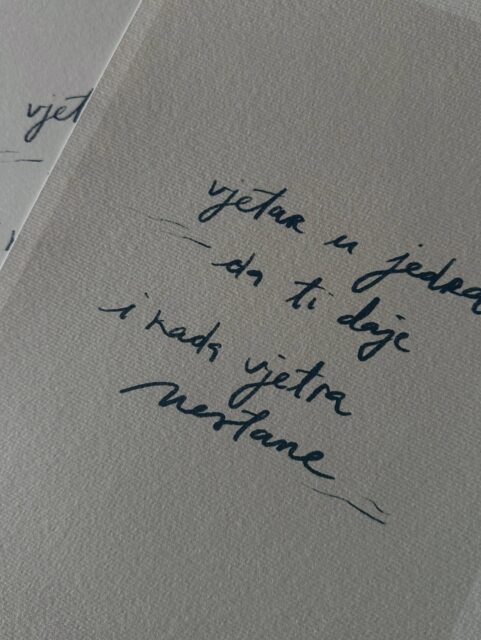 vjet
vjetar u jedra
da ti daje
i kada vjetra
nestane